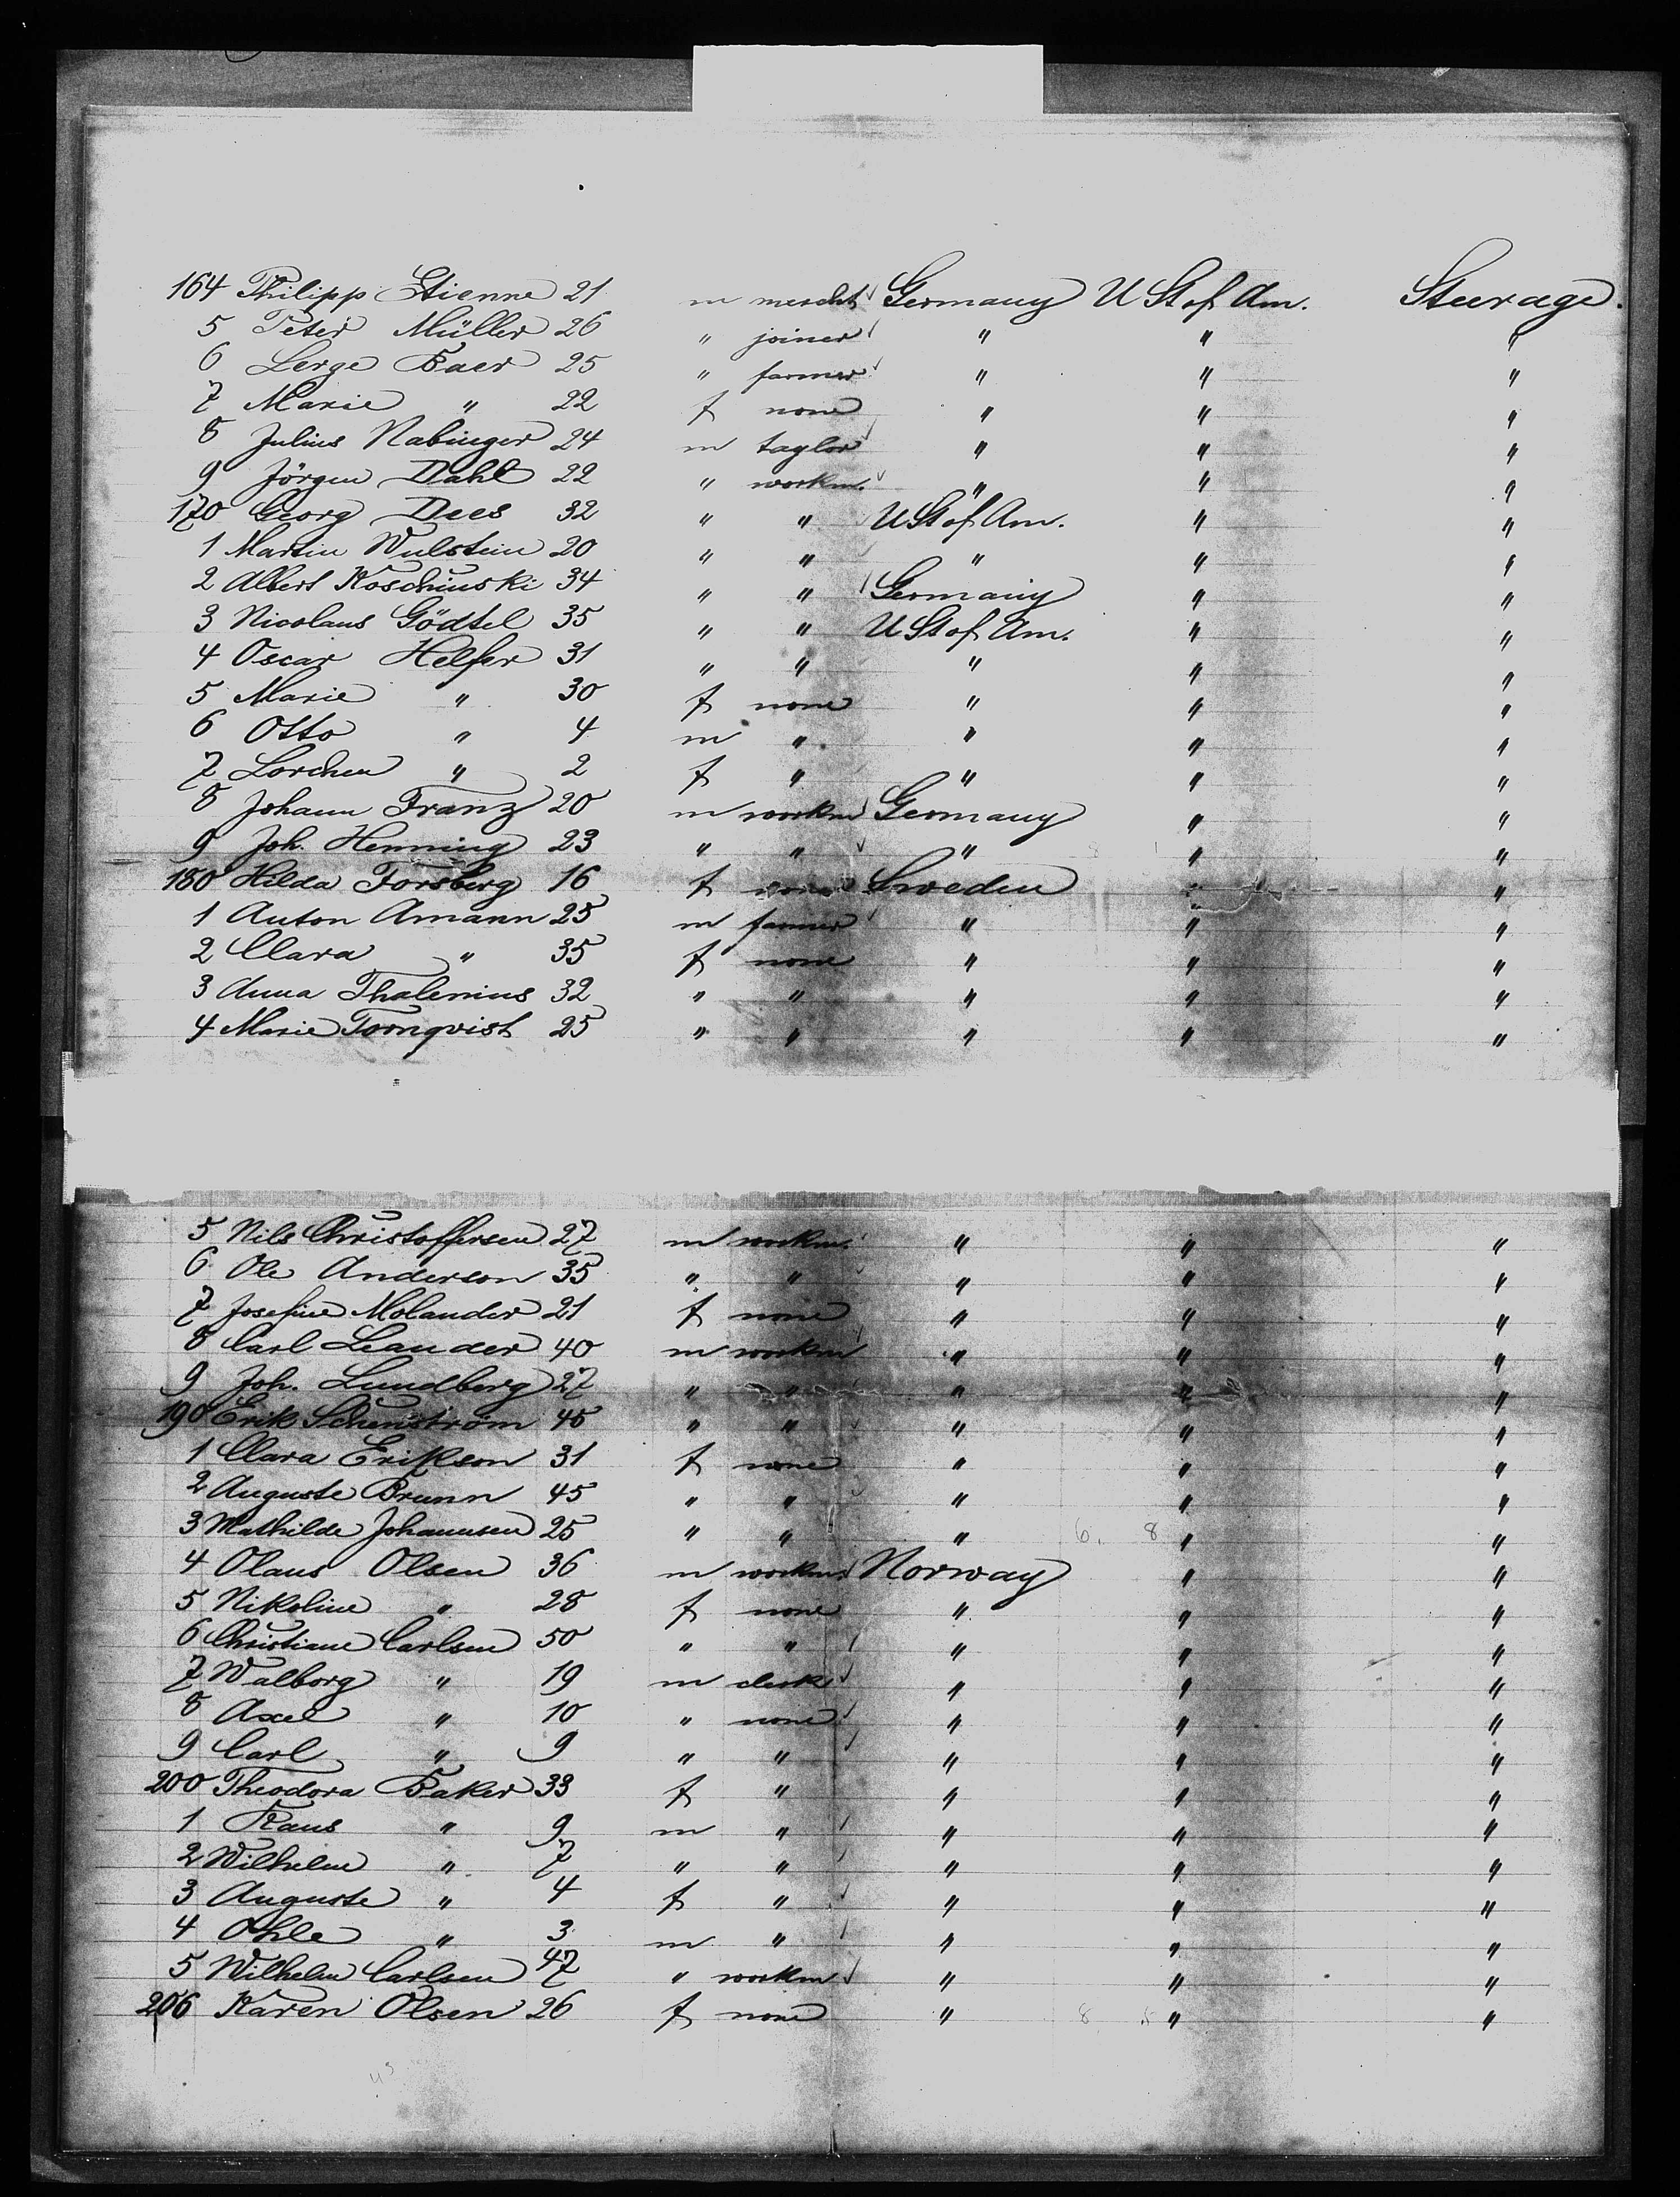 164 Philipp Etienne 21 m mercht Germany U St of Am. Steerage.
5 Peter Müller 26 " joiner " " "
6 Lerge Baer 25 " farmer " " "
7 Marie " 22 f none " " "
8 Julius Nabinger 24 m taylor " " "
9 Jörgen Dahl 22 " workm. " " "
170 Georg Dees 32 " " U St of Am. " "
1 Martin Wulstein 20 " " " " "
2 Albert Koschinski 34 " " Germany " "
3 Nicolaus Gödtel 35 " " U St of Am. " "
4 Oscar Helfer 31 " " " " "
5 Marie " 30 f none " " "
6 Otto " 4 m " " " "
7 Lorchen " 2 f " " " "
8 Johann Franz 20 m workm Germany " "
9 Joh. Henning 23 " " " " "
180 Hilda Forsberg 16 f none Sweden " "
1 Anton Amann 25 m farmer " " "
2 Clara " 35 f none " " "
3 Anna Thalenius 32 " " " " "
4 Marie Tornqvist 25 " " " " "
5 Nils Christoffersen 27 m workm. " " "
6 Ole Anderson 35 " " " " "
7 Josefine Molander 21 f none " " "
8 Carl Leander 40 m workm " " "
9 Joh. Lundberg 27 " " " " "
190 Erik Schenström 45 " " " " "
1 Clara Erikson 31 f none " " "
2 Auguste Brunn 45 " " " " "
3 Mathilde Johannsen 25 " " " 6. 8 " "
4 Olaus Olsen 36 m workm. Norway " "
5 Nikoline " 28 f none " " "
6 Christiane Carlsen 50 " " " " "
7 Walborg " 19 m clerk " " "
8 Axel " 10 " none " " "
9 Carl " 9 " " " " "
200 Theodora Baker 33 f " " " "
1 Hans " 9 m " " " "
2 Wilhelm " 7 " " " " "
3 Auguste " 4 f " " " "
4 Ohle " 3 m " " " "
5 Wilhelm Carlsen 47 " workm " " "
206 Karen Olsen 26 f none " 8 " "